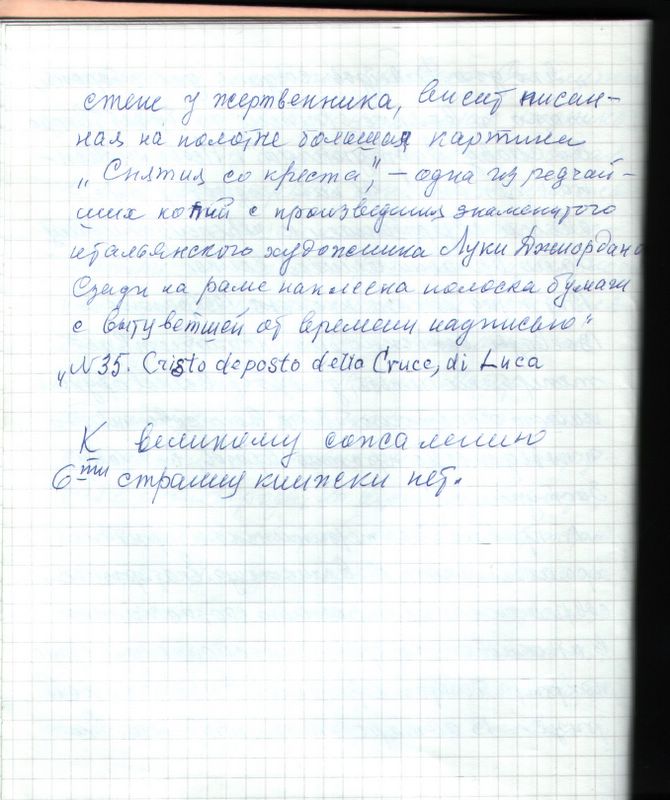 стене у жертвенника, висит писан-
ная на полотне большая картина
„Снятия со креста", – одна из редчай-
ших копий с произведения знаменитого
итальянского художника Луки Джиордано
Сзади на раме наклеена полоска бумаги
с выцветшей от времени надписью"
„N35. Cristo deposto della Cruce, di Luca
К великому сожалению
6ти страниц книжски нет.